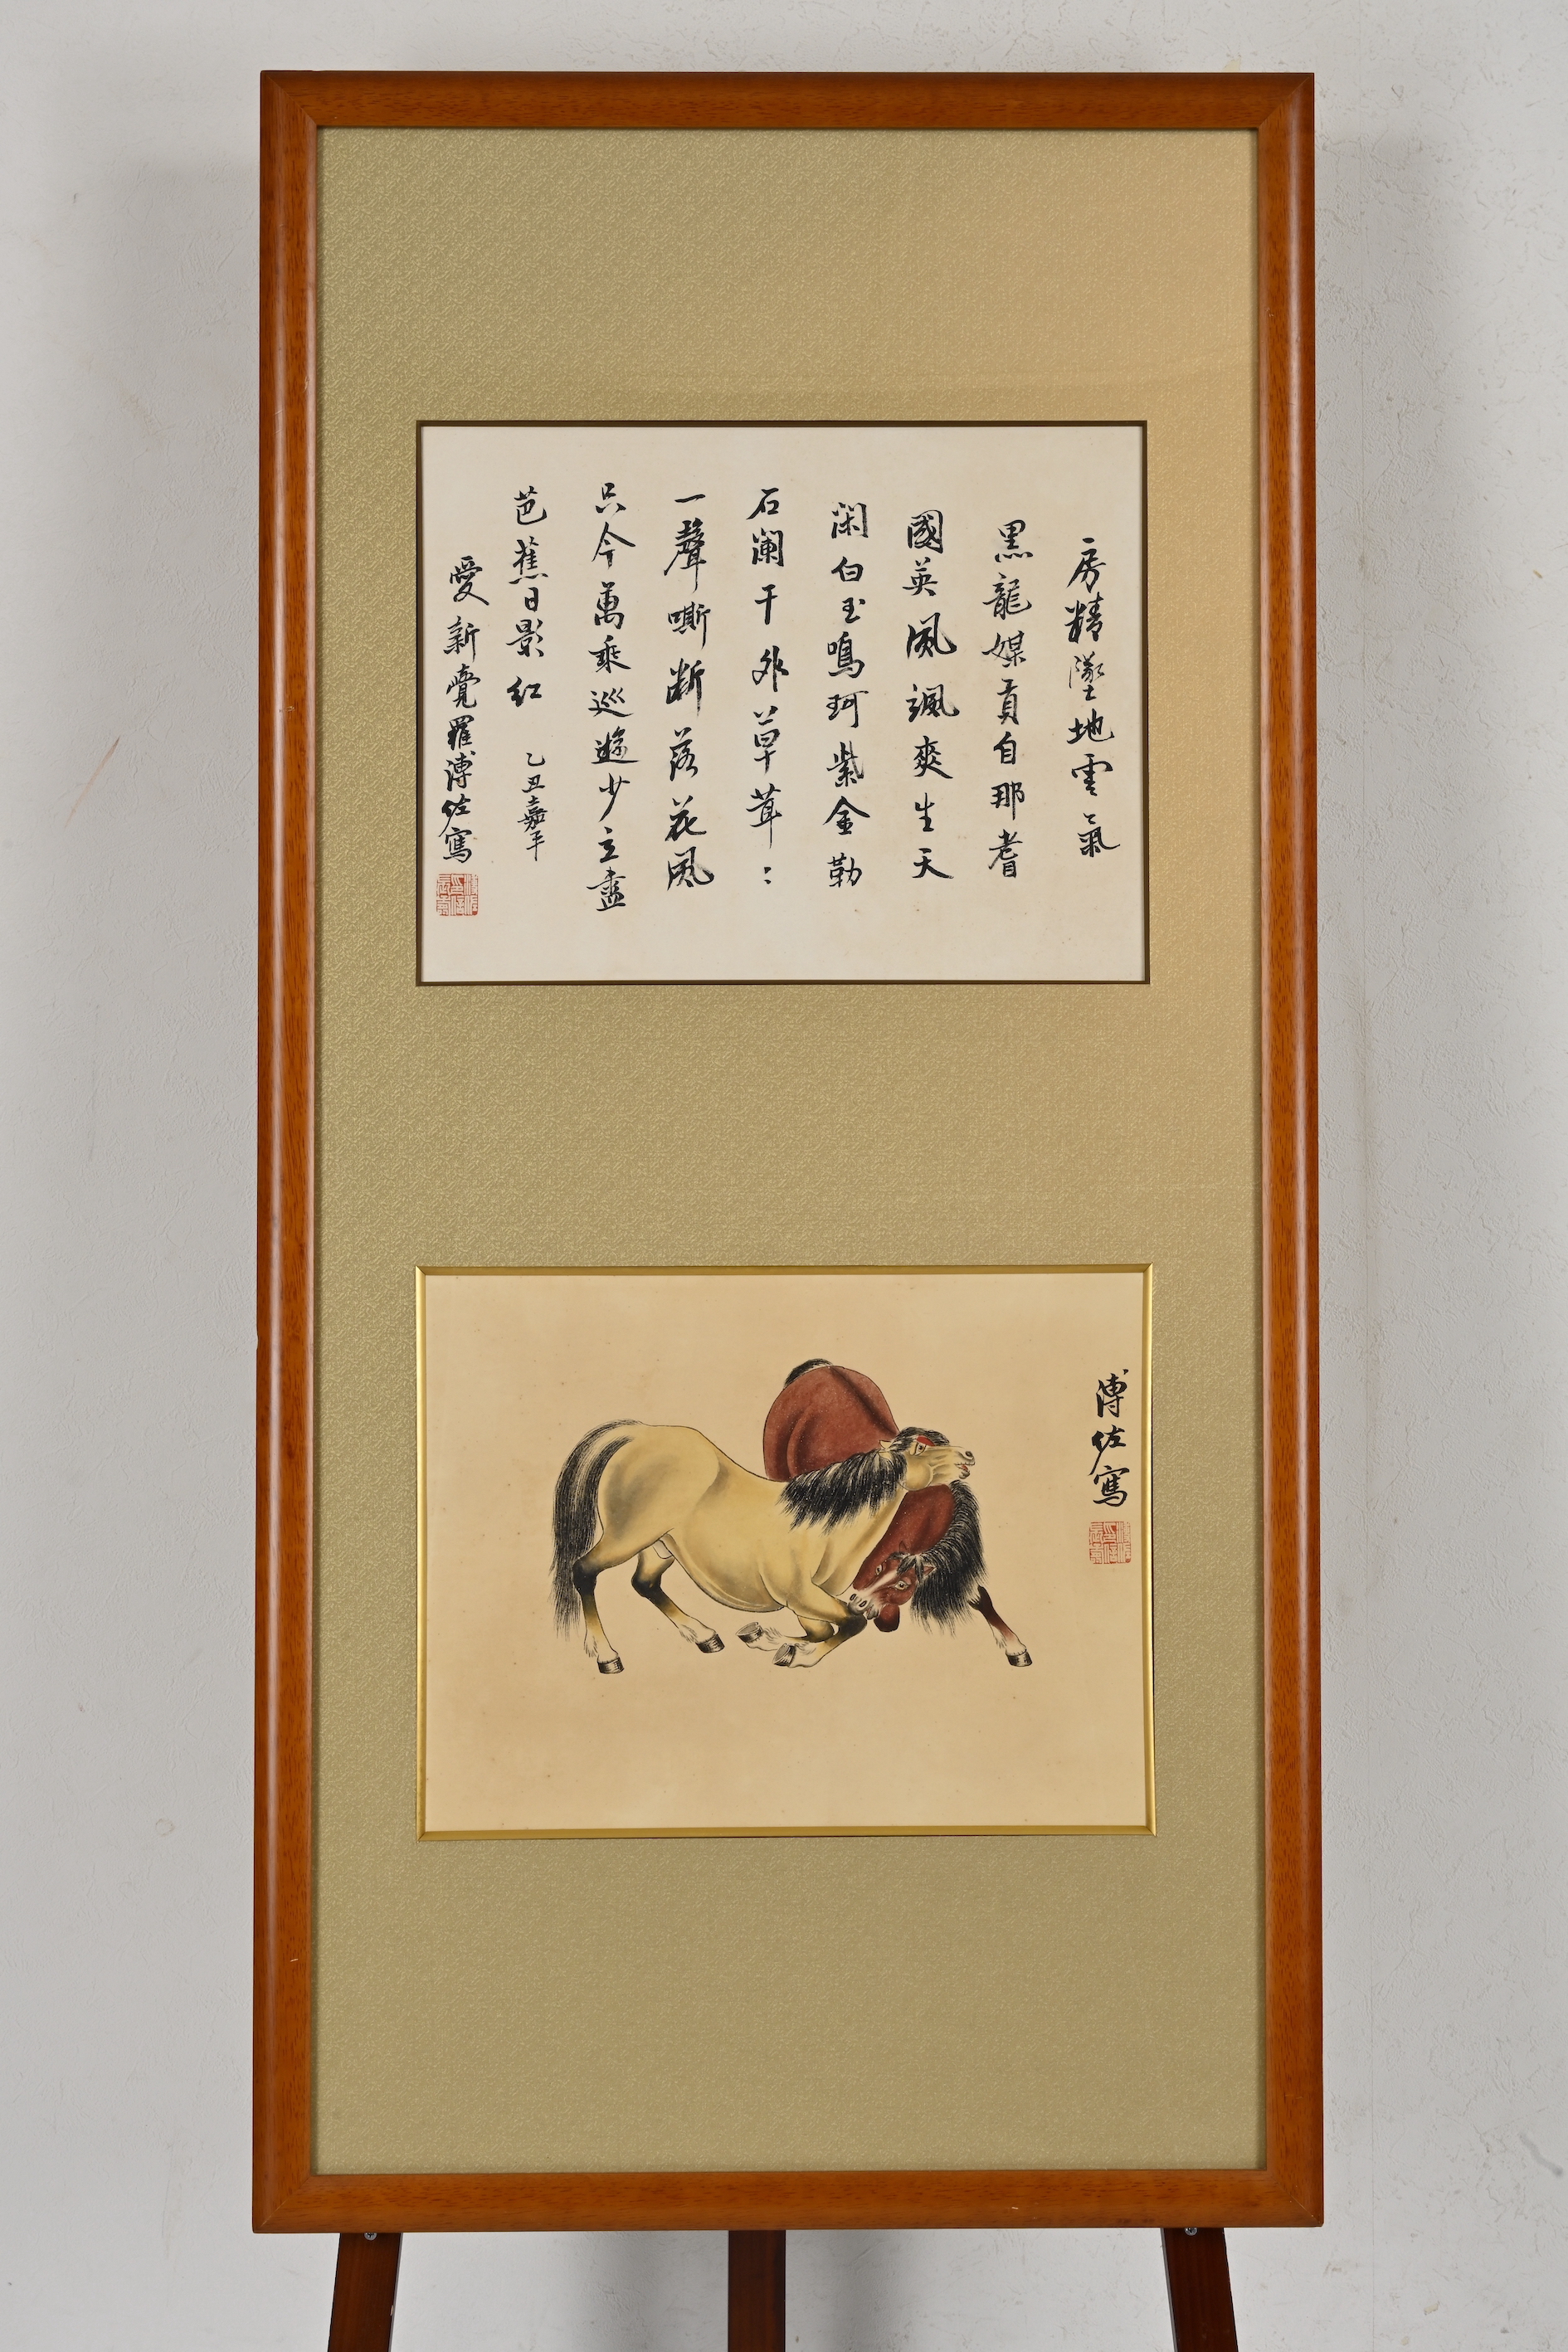 房精墜地雲氣
黑龍媒貢自那耆
國英風颯爽生天
閑白玉鳴珂紫金勒
石闌干外草茸〻
一聲嘶斷落花風
只今萬乘巡遊少立盡
芭蕉日影紅 乙丑嘉平
愛新覺羅溥佐寫
溥佐寫